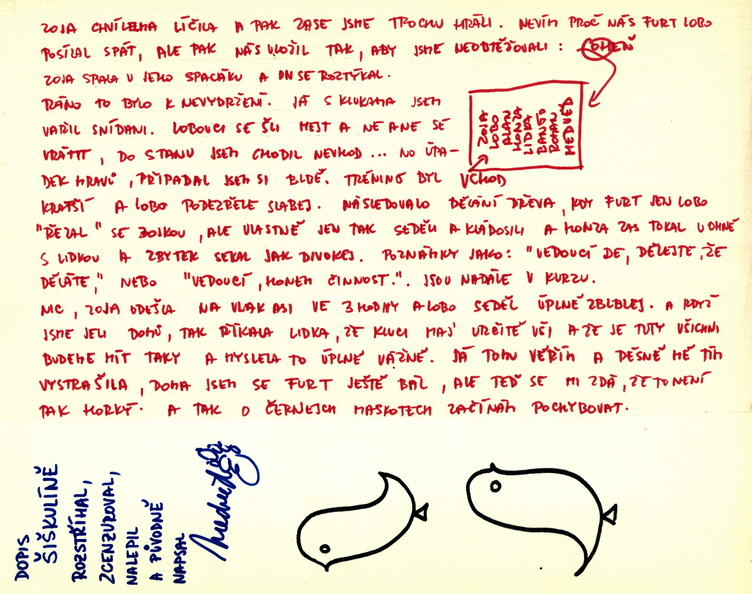 ZOJA CHVÍLEMA LÍČILA A PAK ZASE JSME TROCHU HRÁLI. NEVÍM PROČ NÁS FURT LOBO
POSÍLAL SPÁT, ALE PAK NÁS ULOŽIL TAK, ABY JSME NEOBTĚŽOVALI:
ZOJA SPALA V JEHO SPACÁKU A ON SE ROZTÝKAL.
RÁNO TO BYLO K NEVYDRŽENÍ. JÁ S KLUKAMA JSEM
VAŘIL SNÍDANI. LOBOUCI SE ŠLI MEJT A NE A NE SE
VRÁTIT, DO STANU JSEM CHODIL NEVHOD... NO ÚPA-
DEK MRAVŮ, PŘIPADAL JSEM SI BLBĚ. TRÉNING BYL
KRATŠÍ A LOBO PODEZŘELE SLABEJ. NÁSLEDOVALO DĚLÁNÍ DŘEVA, KDY FURT JEN LOBO
"ŘEZAL" SE ZOJKOU, ALE VLASTNĚ JEN TAK SEDĚLI A KLÁBOSILI A HONZA ZAS TOKAL U OHNĚ
S LIDKOU A ZBYTEK SEKAL JAK DIVOKEJ. POZNÁMKY JAKO: "VEDOUCÍ DE, DĚLEJTE, ŽE
DĚLÁTE," NEBO "VEDOUCÍ, HONEM ČINNOST.". JSOU NADÁLE V KURZU.
NIC, ZOJA ODEŠLA NA VLAK ASI VE 3 HODINY A LOBO SEDĚL ÚPLNĚ ZBLBLEJ. A KDYŽ
JSME JELI DOMŮ, TAK ŘÍKALA LIDKA, ŽE KLUCI MAJ' URČITĚ VŠI A ŽE JE TUTY VŠICHNI
BUDEME MÍT TAKY A MYSLELA TO ÚPLNĚ VÁŽNĚ. JÁ TOMU VĚŘÍM A DĚSNĚ MĚ TÍM
VYSTRAŠILA, DOMA JSEM SE FURT JEŠTĚ BÁL, ALE TEĎ SE MI ZDÁ, ŽE TO NENÍ
TAK HORKÝ. A TAK O ČERNEJCH MASKOTECH ZAČÍNÁM POCHYBOVAT.
OHEŇ
ZOJA
LOBO
ALAN
HONZA
LIDKA
ROMAN
MEDVĚD
VCHOD
DOPIS
ŠIŠKULÍNĚ
ROZSTŘÍHAL,
ZCENZUROVAL,
NALEPIL
A PŮVODNĚ
NAPSAL